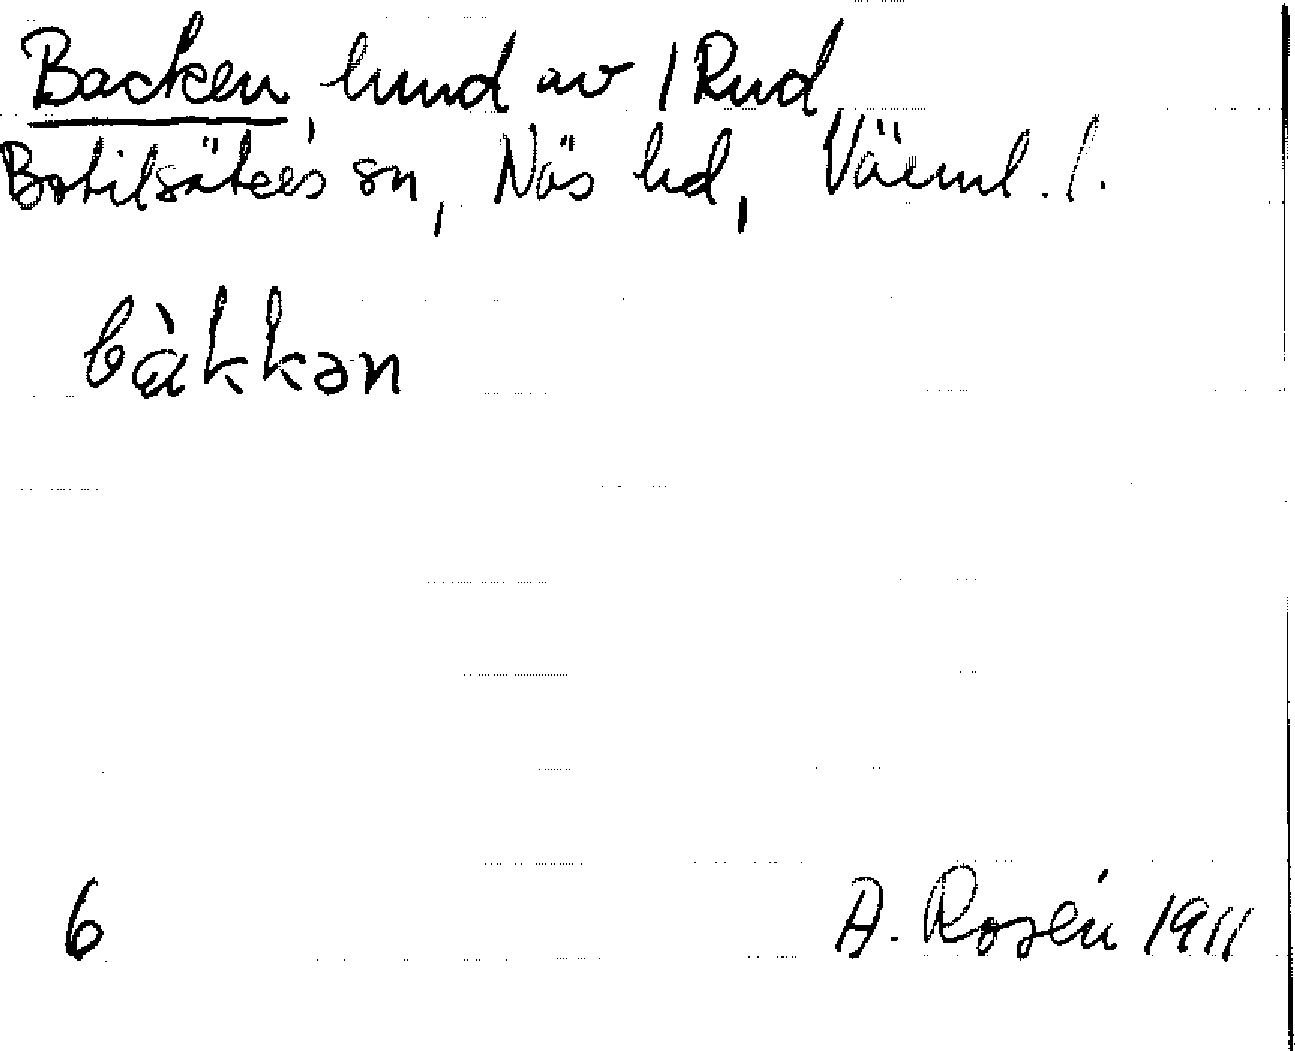 Backen, hmd av 1 Rud
Botilsäters sn, Näs hd, Värml. l.
bàkkən
6
A. Rosén 1911